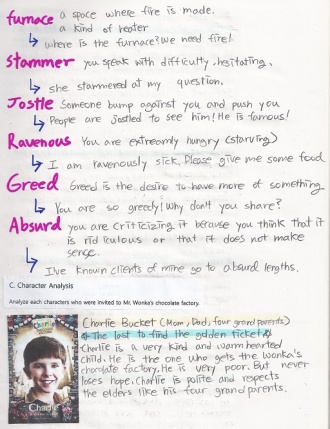 furnace a space where fire is made.
a kind of heater
where is the furnace? We need fire!
Stammer you speak with difficulty, hesitating.
she stammered at my question.
Jostle Someone bump against you and push you
People are jostled to see him! He is famous!
Ravenous You are extreamly hungry (starving)
I am ravenously sick. Please give me some food
Greed Greed is the desire to have more of something
You are so greedy! Why don't you share?
Absurd you are criticizing it because you think that it
is ridiculous or that it does not make
sense.
I've known clients of mine go to absurd lengths.
C. Character Analysis
Analyze each characters who were invited to Mr. Wonka's chocolate factory.
Charlie Bucket (Mom, Dad, four grand parents)
The last to find the golden ticket
Charlie is a very kind and warmhearted
child. He is the one who gets the wonka's
chocolate factory. He is very poor. But never
loses hope. Charlie is polite and respects
the elders like his four grand parents.
Charlie